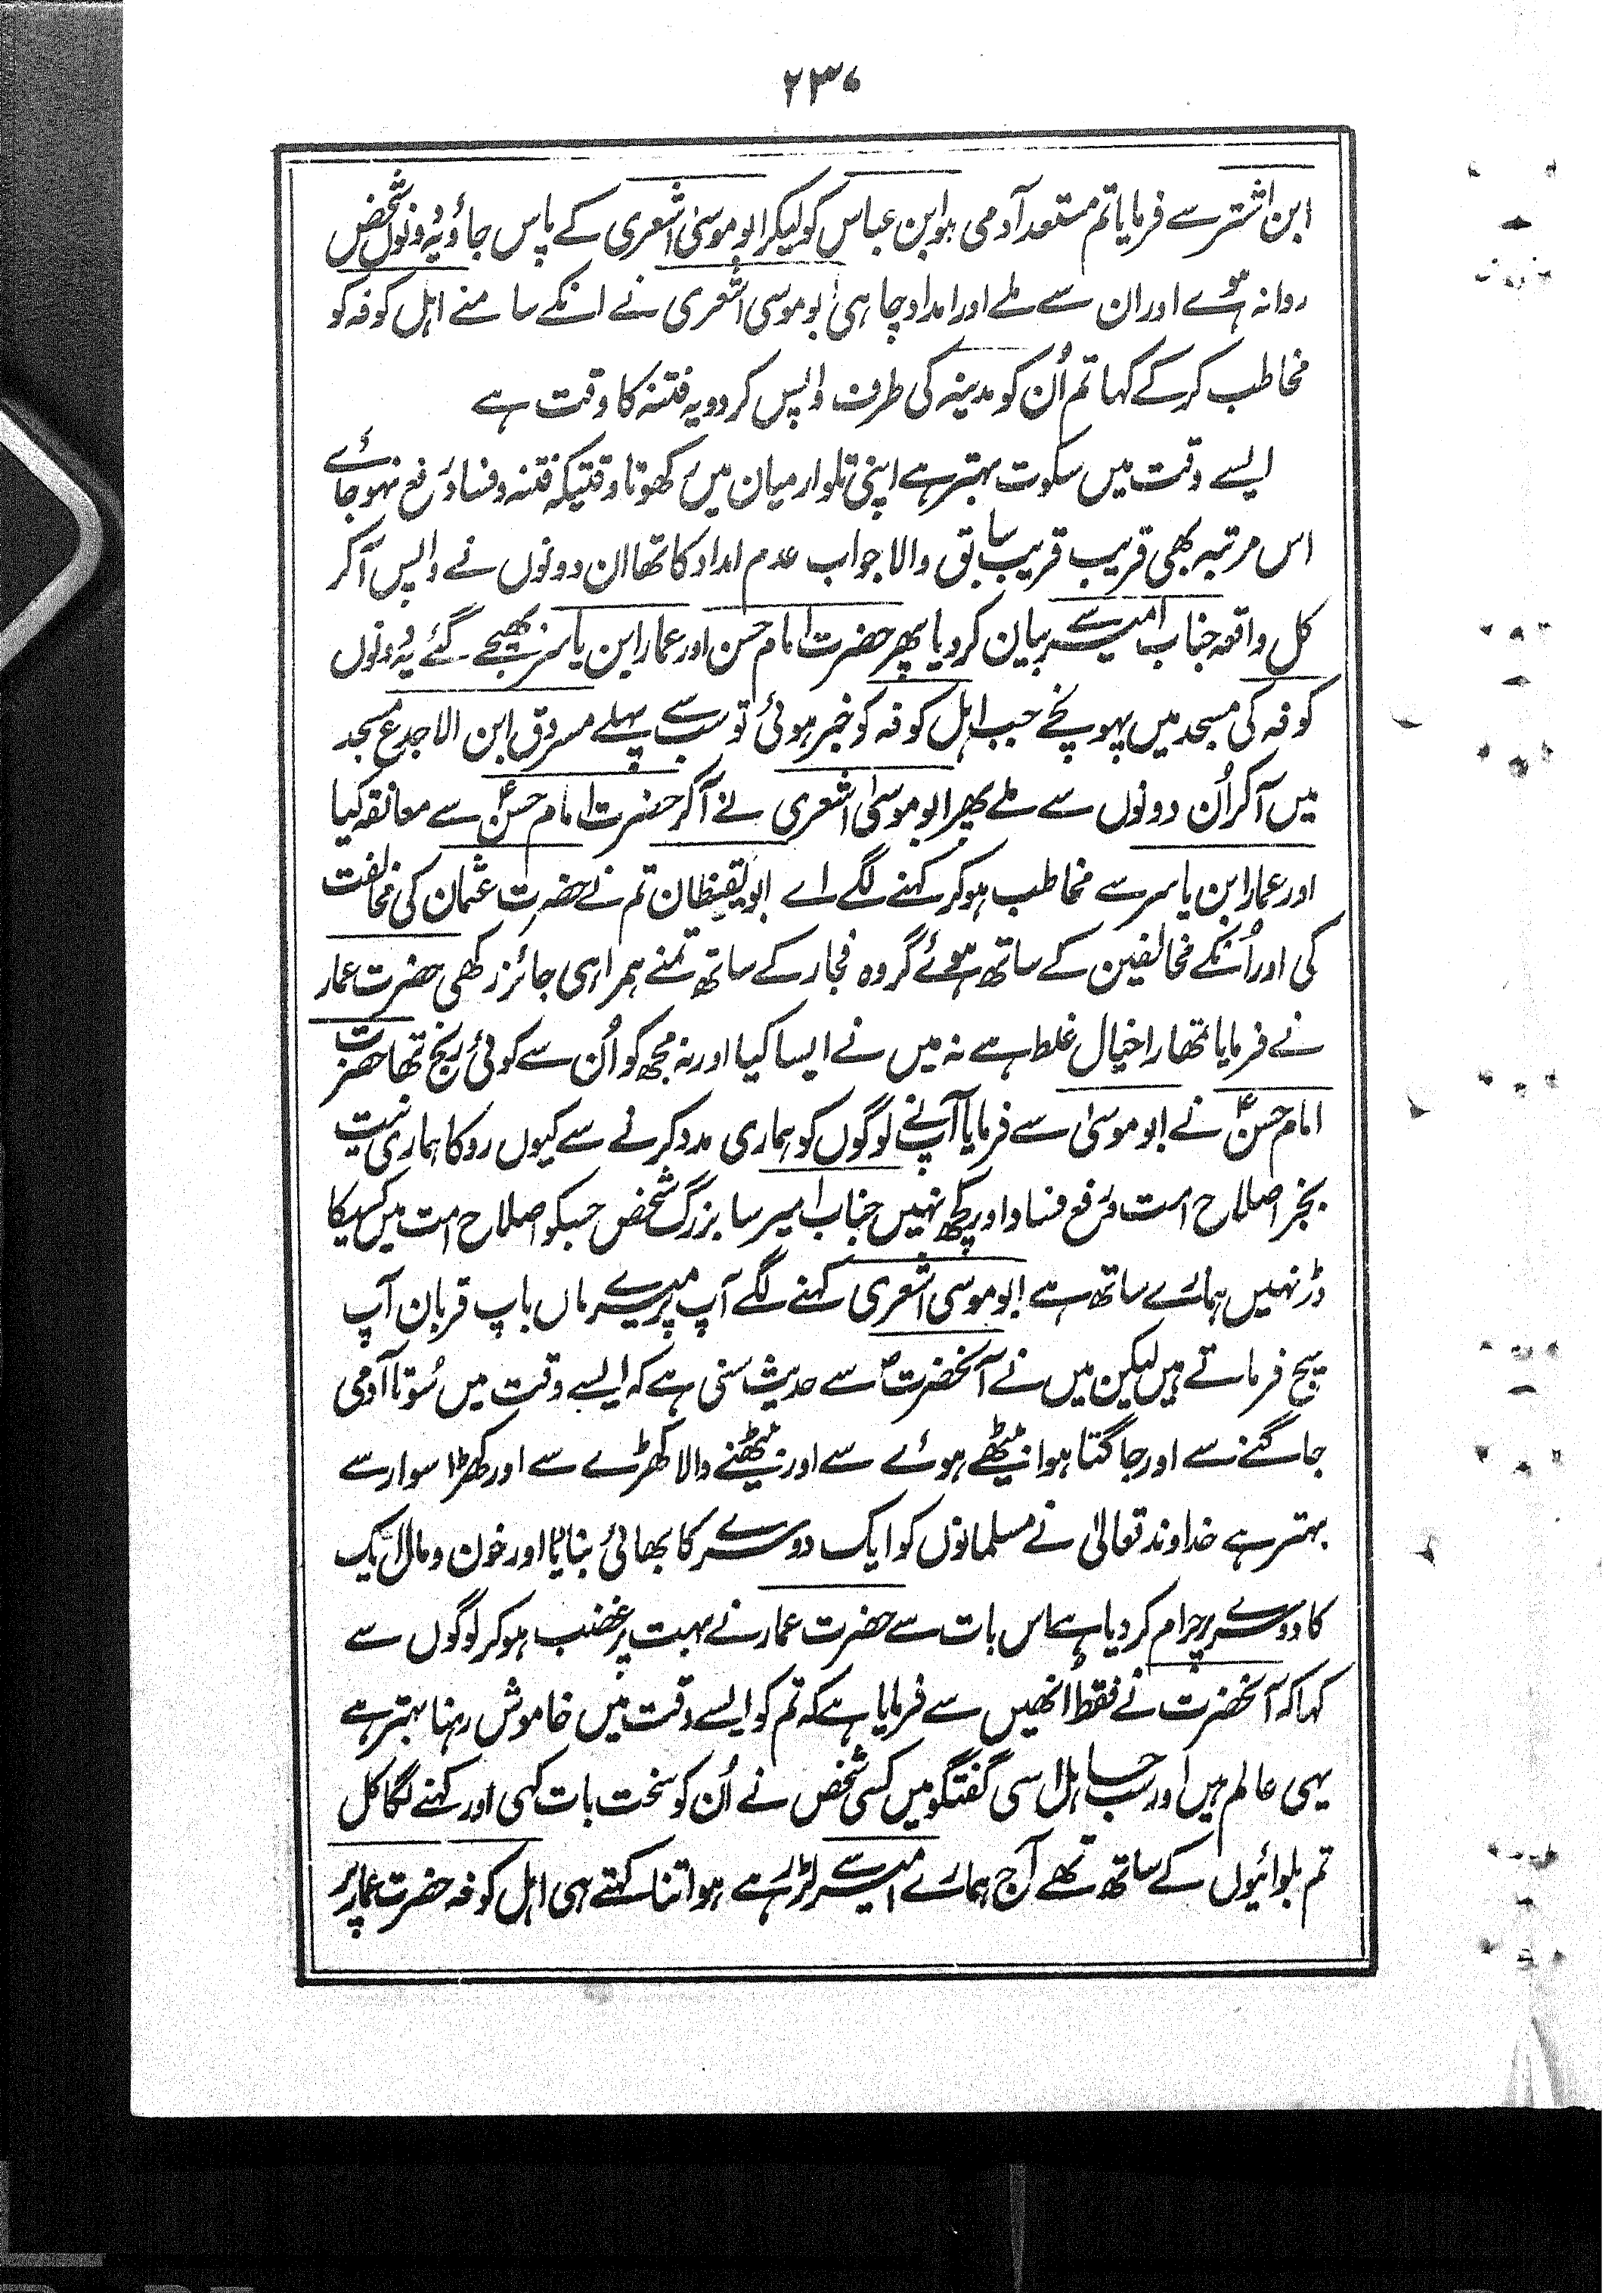 ۲۳۰
ابن اشتر سے فرمایا تم مستعد آدمی ہو ابن عباس کو لیکر ابو موسیٰ اشعری کے پاس جاؤ یہ دونوں شخص
روانہ ہوے اور ان سے ملے اور امداد چاہی ابو موسی اشعری نے انکے سامنے اہل کوفہ کو
مخاطب کر کے کہا تم اُن کو مدینہ کی طرف واپس کر دو یہ فتنہ کا وقت ہے
ایسے وقت میں سکوت بہتر ہے اپنی تلوار میان میں رکھو تا وقتیکہ فتنہ و فساد رفع نہو جائے
اس مرتبہ بھی قریب قریب سابق والا جواب عدم امداد کا تھا ان دونوں نے واپس آکر
کل واقعہ جناب امیر سے بیان کر دیا پھر حضرت امام حسن اور عمار ابن یاسر بھیجے گئے یہ دونوں
کوفہ کی مسجد میں پہونچے جب اہل کوفہ کو خبر ہوئی تو سب سے پہلے مسروق ابن الاجدع مسجد
میں آکر اُن دونوں سے ملے پھر ابو موسیٰ اشعری نے آکر حضرت امام حسنؑ سے معانقہ کیا
اور عمار ابن یاسر سے مخاطب ہو کر کہنے لگے اے ابو لیقیظان تم نے حضرت عثمان کی مخالفت
کی اور اُنکے مخالفین کے ساتھ ہوئے گروہ فجار کے ساتھ تمنے ہمراہی جائز رکھی حضرت عمار
نے فرمایا تمھارا خیال غلط ہے نہ میں نے ایسا کیا اور نہ مجھ کو اُن سے کوئی رنج تھا حضرت
امام حسنؑ نے ابو موسیٰ سے فرمایا آپ نے لوگوں کو ہماری مدد کرنے سے کیوں روکا ہماری نیت
بجز اصلاح امت رفع فساد اور کچھ نہیں جناب امیر سا بزرگ شخص جسکو اصلاح امت میں کسیکا
ڈر نہیں ہمارے ساتھ ہے ابو موسی اشعری کہنے لگے آپ پر میرے ماں باپ قربان آپ
سچ فرماتے ہیں لیکن میں نے آنحضرتؐ سے حدیث سنی ہے کہ ایسے وقت میں سُوتا آدمی
جاگنے سے اور جاگتا ہوا بیٹھے ہوئے سے اور بیٹھنے والا کھڑے سے اور کھڑا سوار سے
بہتر ہے خداوند تعالیٰ نے مسلمانوں کو ایک دوسرے کا بھائی بنایا اور خون و مال ایک
کا دوسرے پر حرام کر دیا ہے اس بات سے حضرت عمار نے بہت پر غضب ہو کر لوگوں سے
کہا کہ آنحضرت نے فقط انھیں سے فرمایا ہے کہ تم کو ایسے وقت میں خاموش رہنا بہتر ہے
یہی عالم ہیں اور سب جاہل اسی گفتگو میں کسی شخص نے اُن کو سخت بات کہی اور کہنے لگا کل
تم بلوائیوں کے ساتھ تھے آج ہمارے امیر سے لڑ رہے ہو اتنا کہتے ہی اہل کوفہ حضرت عمار پر